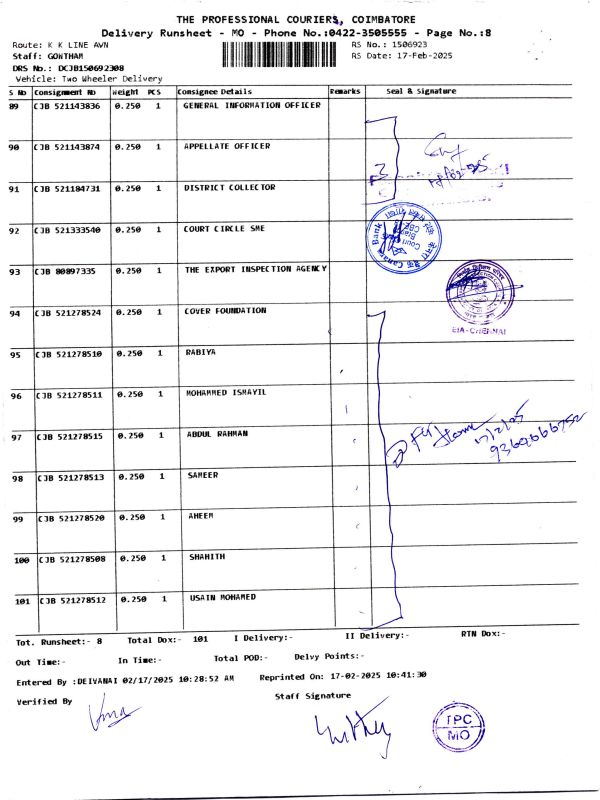 THE PROFESSIONAL COURIERS, COIMBATORE
Delivery Runsheet - MO - Phone No.:0422-3505555 - Page No.:8
Route: K K LINE AVN RS No.: 1506923
Staff: GONTHAM RS Date: 17-Feb-2025
DRS No.: DCJB150692308
Vehicle: Two Wheeler Delivery
S No Consignment No Weight PCS Consignee Details Remarks Seal & Signature
89 CJB 521143836 0.250 1 GENERAL INFORMATION OFFICER
90 CJB 521143874 0.250 1 APPELLATE OFFICER
91 CJB 521184731 0.250 1 DISTRICT COLLECTOR
92 CJB 521333540 0.250 1 COURT CIRCLE SME
Canara Bank
93 CJB 80897335 0.250 1 THE EXPORT INSPECTION AGENCY
EIA-CHENNAI
94 CJB 521278524 0.250 1 COVER FOUNDATION
95 CJB 521278510 0.250 1 RABIYA
96 CJB 521278511 0.250 1 MOHAMMED ISMAYIL
97 CJB 521278515 0.250 1 ABDUL RAHMAN
17/2/25
98 CJB 521278513 0.250 1 SAMEER
99 CJB 521278520 0.250 1 AHEEM
100 CJB 521278508 0.250 1 SHAHITH
101 CJB 521278512 0.250 1 USAIN MOHAMED
Tot. Runsheet:- 8 Total Dox:- 101 I Delivery:- II Delivery:- RTN Dox:-
Out Time:- In Time:- Total POD:- Delvy Points:-
Entered By :DEIVANAI 02/17/2025 10:28:52 AM Reprinted On: 17-02-2025 10:41:30
Verified By Staff Signature
TPC
MO